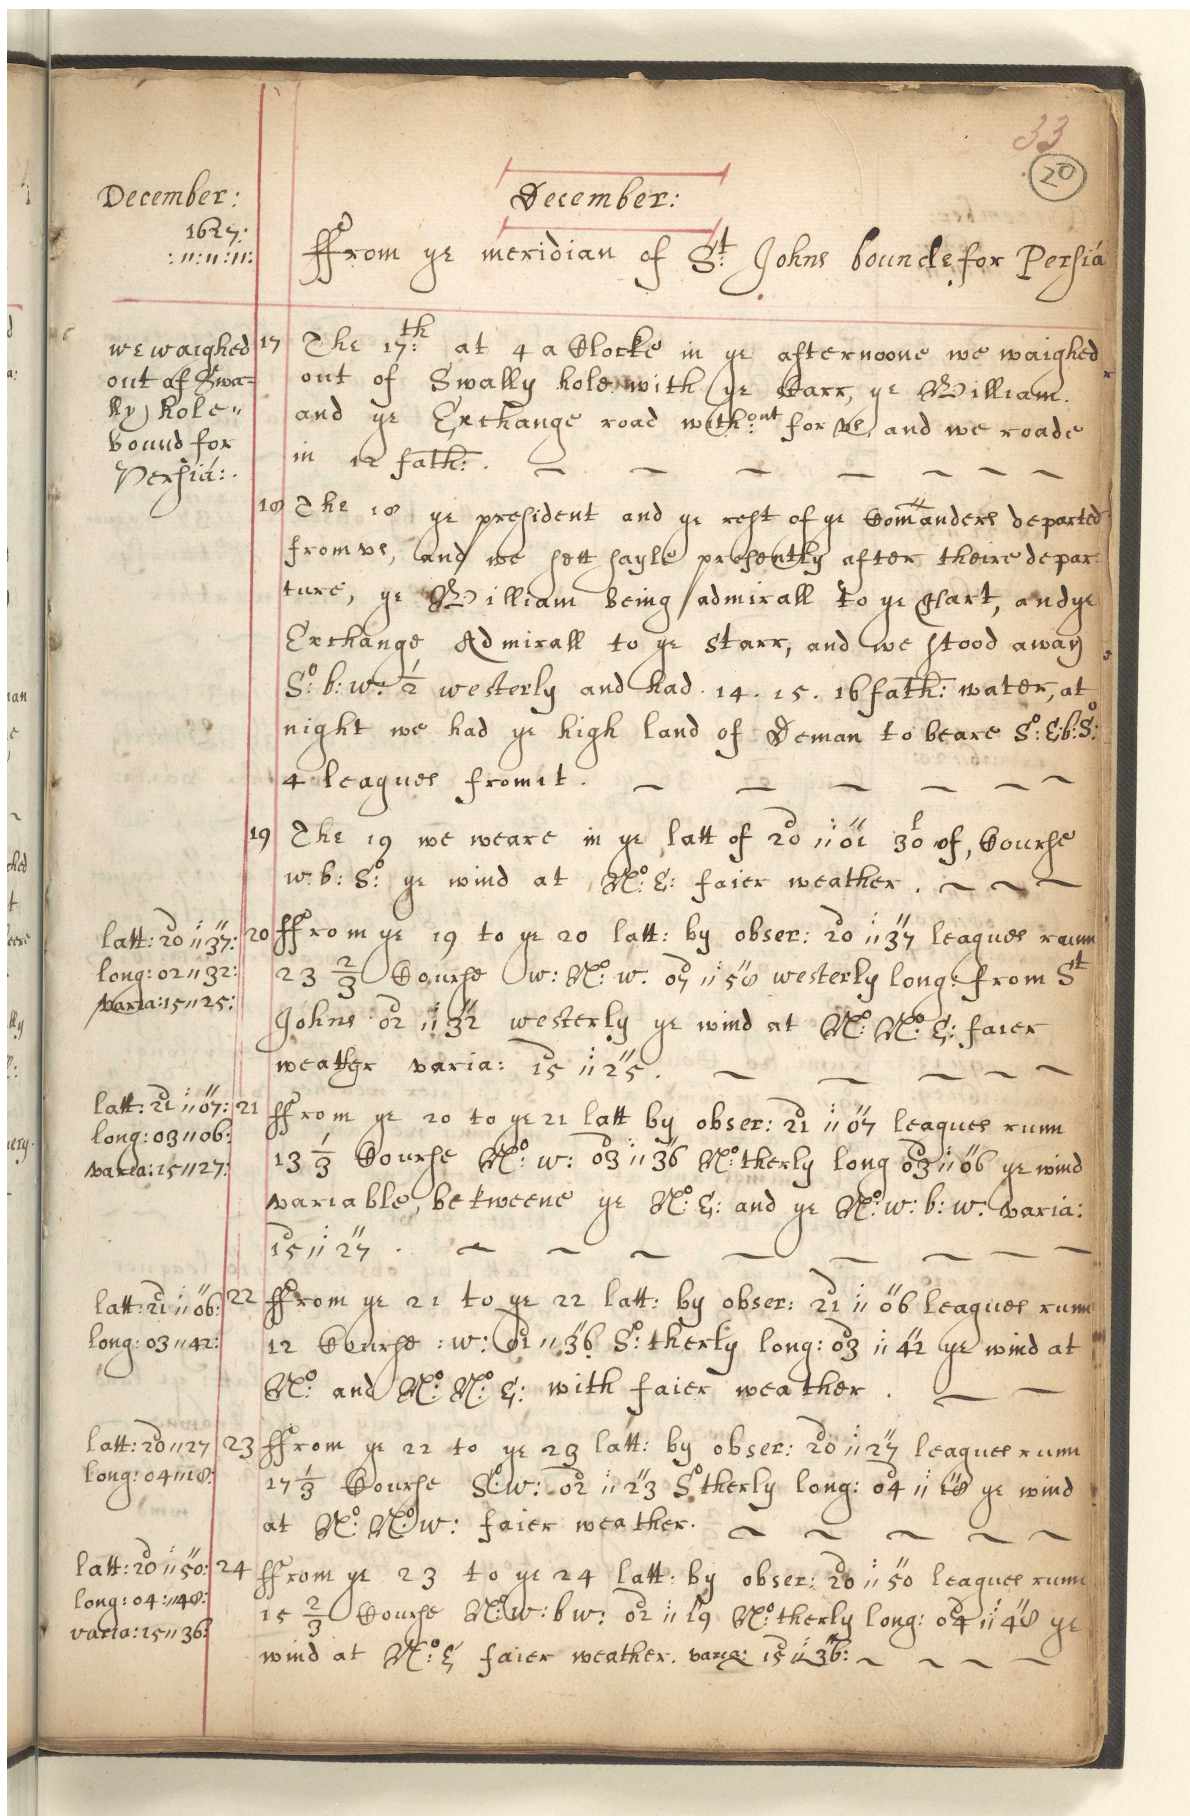 33
20
December:
1627:
:11:11:11:
December:
ffrom ye meridian of St: Johns bounde for Persia
we waighed
out of Swa=
lly hole"
bound for
Persia:.
17 The 17th: at 4 a Clocke in ye afternoone we waighed
out of Swally hole with ye Starr, ye William.
and ye Exchange road with:out for us, and we roade
in 12 fath:.
18 The 18 ye president and ye rest of ye Comanders departed
from us, and we sett sayle presently after theire depar
ture, ye William being admirall to ye Hart, and ye
Exchange Admirall to ye Starr, and we stood away
So: b: w: 1/2 westerly and had. 14. 15. 16 fath: water, at
night we had ye high land of Deman to beare So: E: b: So:
4 leagues from it.
19 The 19 we weare in ye latt of 20 " 01 30 of, Course
w: b: So: ye wind at No: E: faier weather.
latt: 20 " 37:
long: 02 " 32:
varia: 15 " 25:
20 ffrom ye 19 to ye 20 latt: by obser: 20 " 37 leagues runn
23 2/3 Course w: No: w. 07 " 58 westerly long: from St
Johns 02 " 32 westerly ye wind at No: No: E: faier
weather varia: 15 " 25.
latt: 21 " 07:
long: 03 " 06:
varia: 15 " 27:
21 ffrom ye 20 to ye 21 latt by obser: 21 " 07 leagues runn
13 1/3 Course No: w: 03 " 36 No: therly long 03 " 06 ye wind
variable, betweene ye No: E: and ye No: w: b: w: varia:
15 " 27.
latt: 21 " 06:
long: 03 " 42:
22 ffrom ye 21 to ye 22 latt: by obser: 21 " 06 leagues runn
12 Course : w: 01 " 36 So: therly long: 03 " 42 ye wind at
No: and No: No: E: with faier weather.
latt: 20 " 27
long: 04 " 18:
23 ffrom ye 22 to ye 23 latt: by obser: 20 " 27 leagues runn
17 1/3 Course So: w: 02 " 23 So therly long: 04 " 18 ye wind
at No: No: w: faier weather.
latt: 20 " 50:
long: 04: " 48:
varia: 15 " 36:
24 ffrom ye 23 to ye 24 latt: by obser: 20 " 50 leagues runn
15 2/3 Course No: w: b w: 02 " 19 No: therly long: 04 " 48 ye
wind at No: E faier weather. varia: 15 " 36: